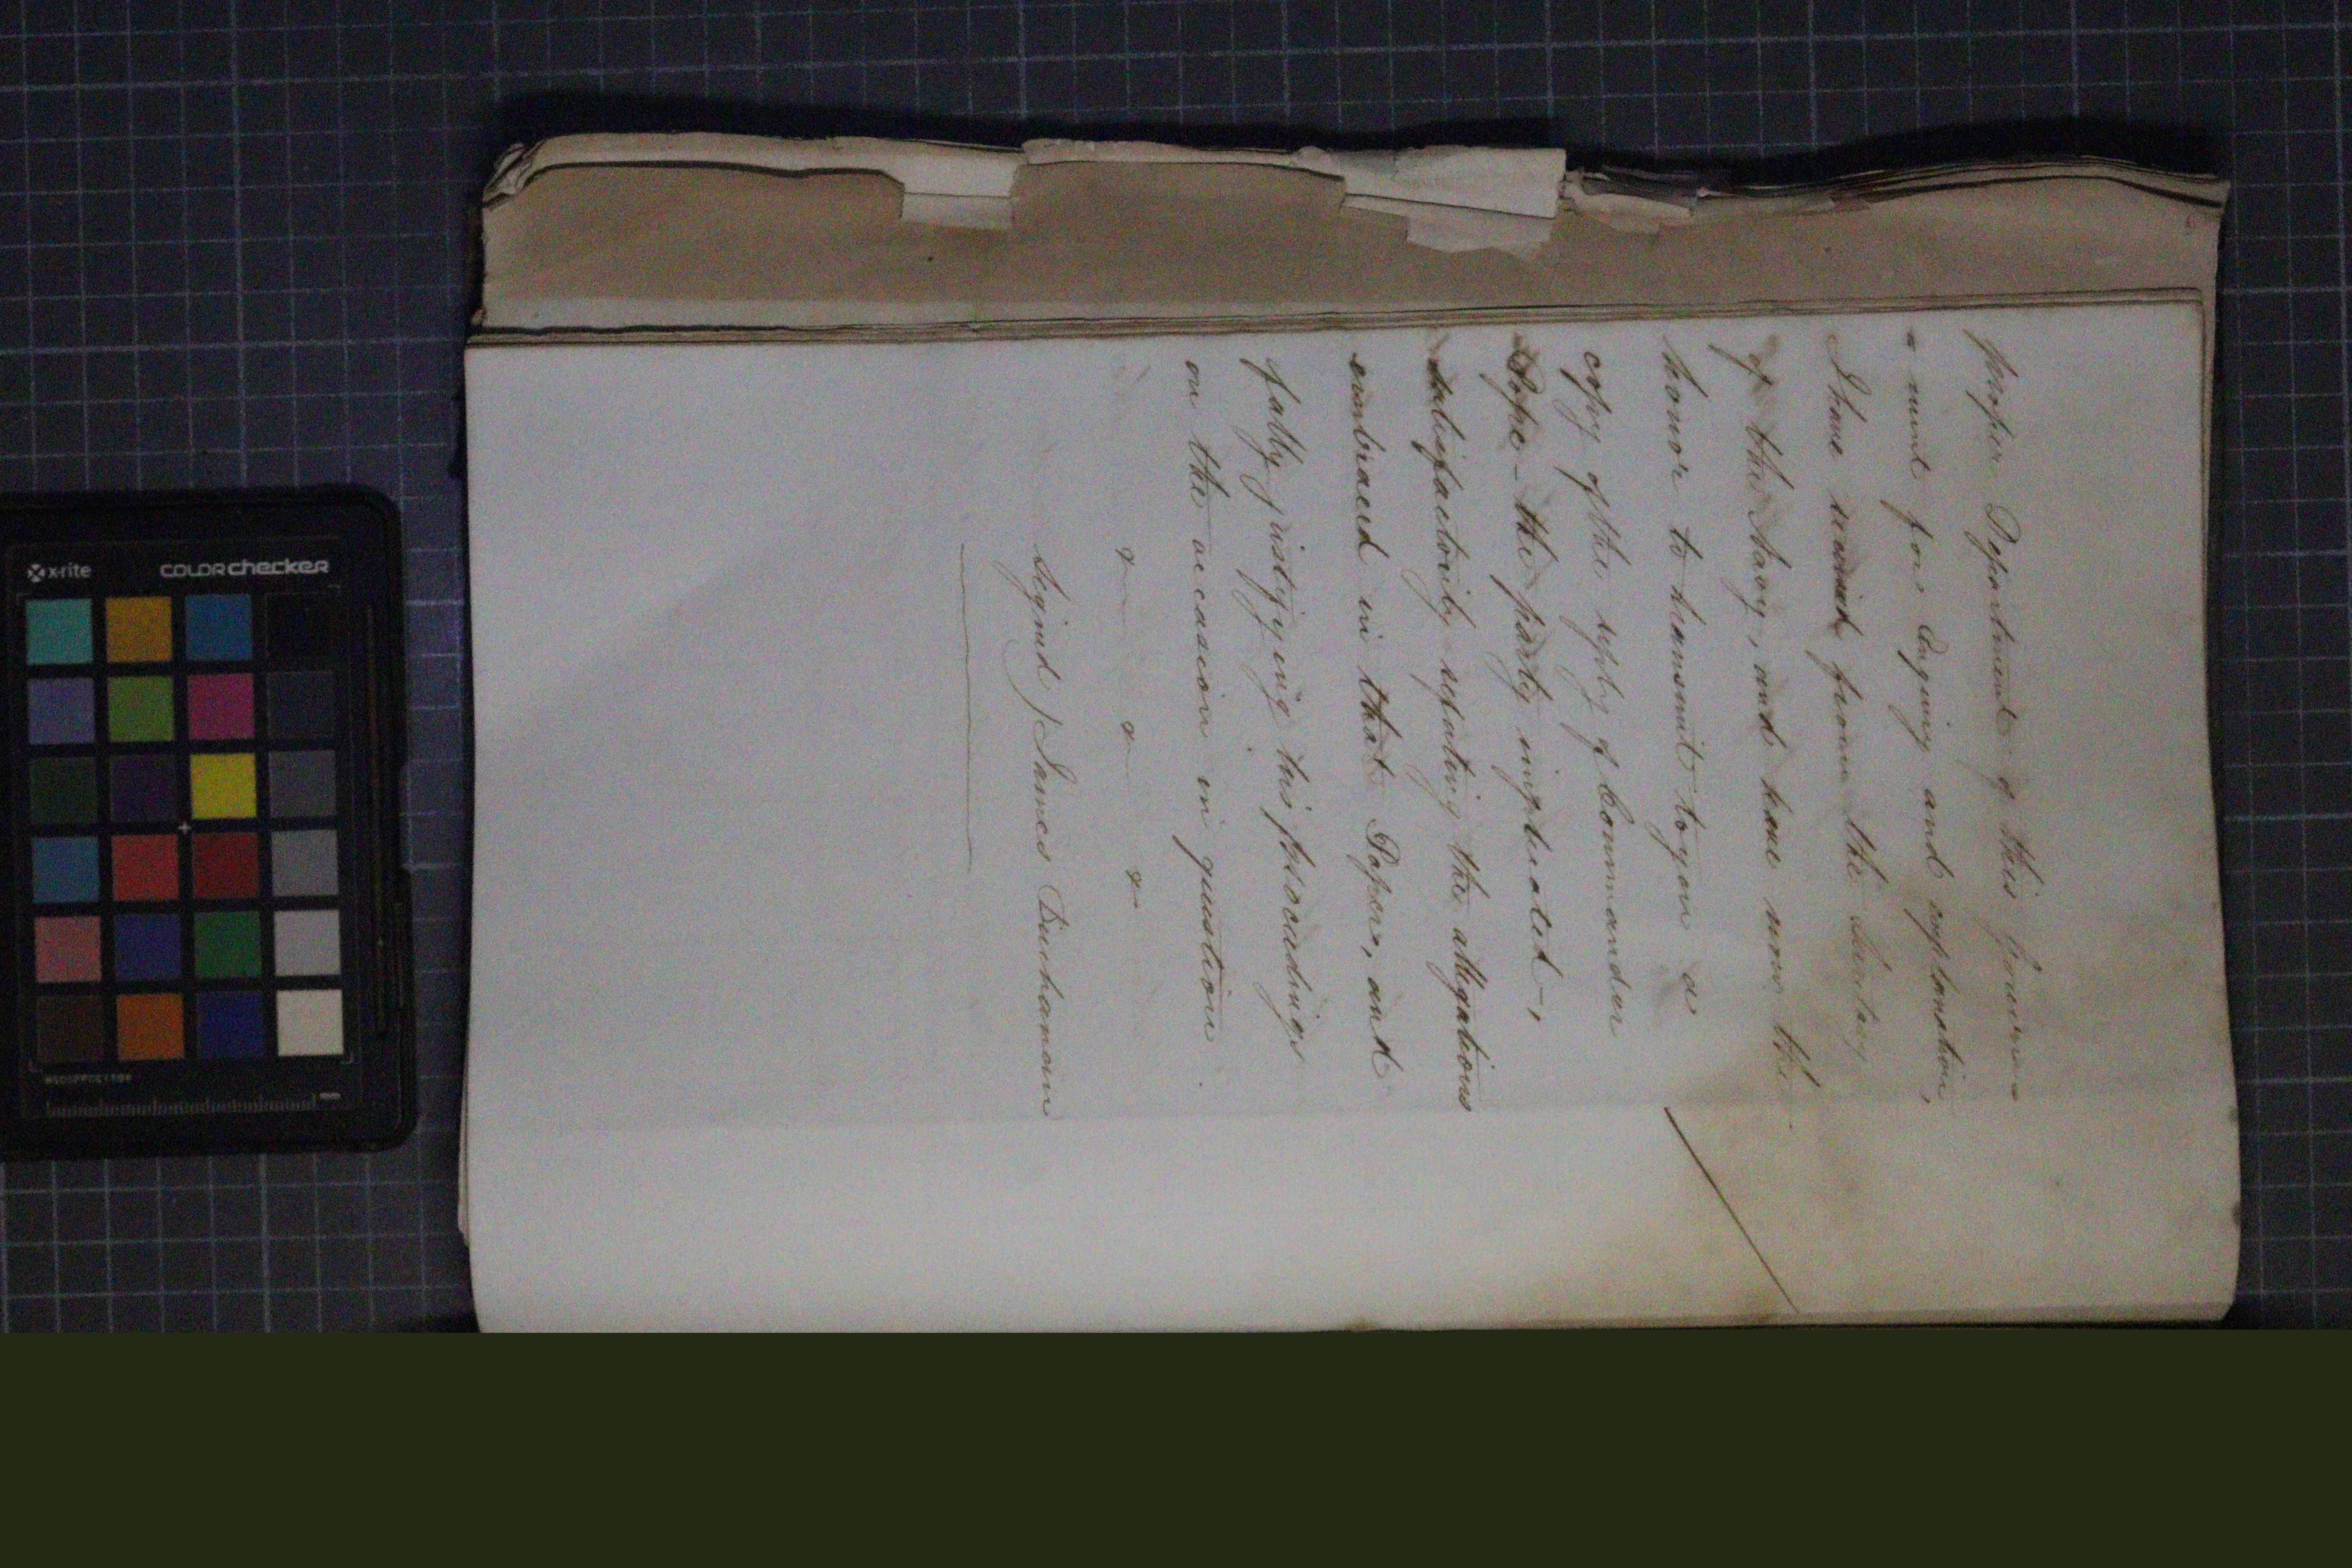 proper Department of this Govern=
=ment for Enquiry and explanation,
I have received from the Secretary
of the Navy, and have now the
honor to transmit to you a
copy of the reply of Commander
Pope - the party implicated -,
satisfactorily refuting the allegations
embraced in that Paper, and
fully justifying his proceedings
on the occasion in question.
x x x
Signed / James Buchanan
x-rite colorchecker